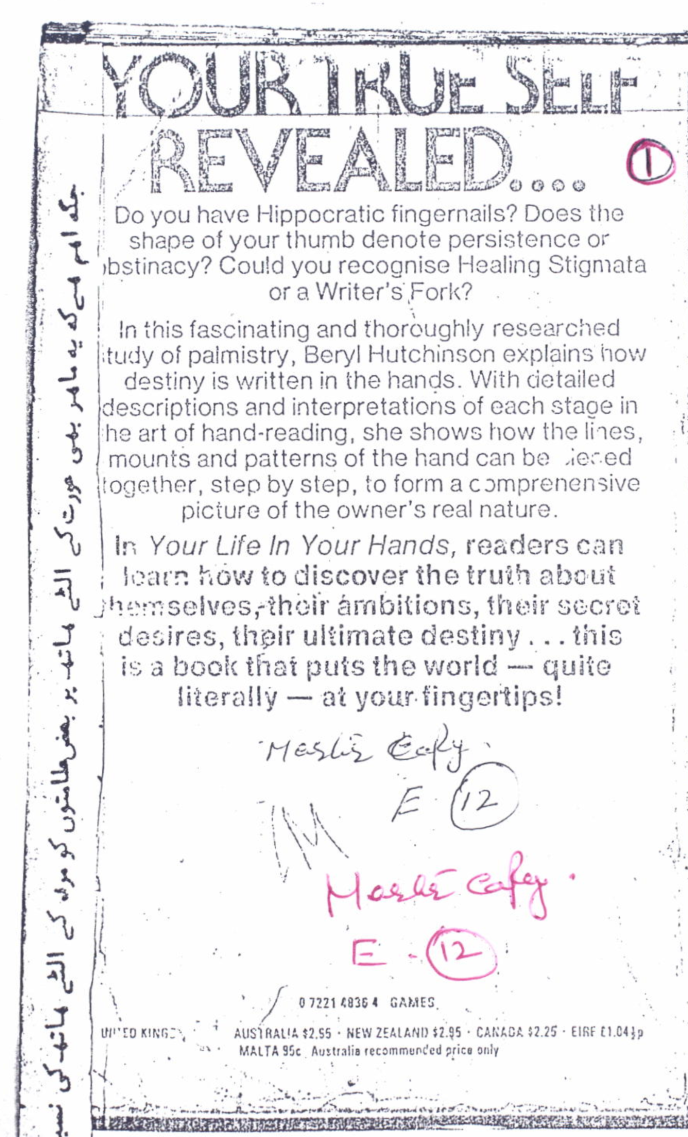 YOUR TRUE SELF
REVEALED....
1
Do you have Hippocratic fingernails? Does the
shape of your thumb denote persistence or
bstinacy? Could you recognise Healing Stigmata
or a Writer's Fork?
In this fascinating and thoroughly researched
tudy of palmistry, Beryl Hutchinson explains how
destiny is written in the hands. With detailed
descriptions and interpretations of each stage in
he art of hand-reading, she shows how the lines,
mounts and patterns of the hand can be
together, step by step, to form a comprehensive
picture of the owner's real nature.
In Your Life In Your Hands, readers can
learn how to discover the truth about
themselves, their ambitions, their secret
desires, their ultimate destiny ... this
is a book that puts the world — quite
literally — at your fingertips!
Copy
E 12
M
Copy
E - 12
0 7221 4836 4 GAMES
UNITED KINGD
AUSTRALIA $2.95 · NEW ZEALAND $2.95 · CANADA $2.25 · EIRE £1.04½p
MALTA 95c Australia recommended price only
جبکہ اہم ہے کہ یہ ماہر بھی عورت کے الٹے ہاتھ پر بعض علامتوں کو مرد کے الٹے ہاتھ کی